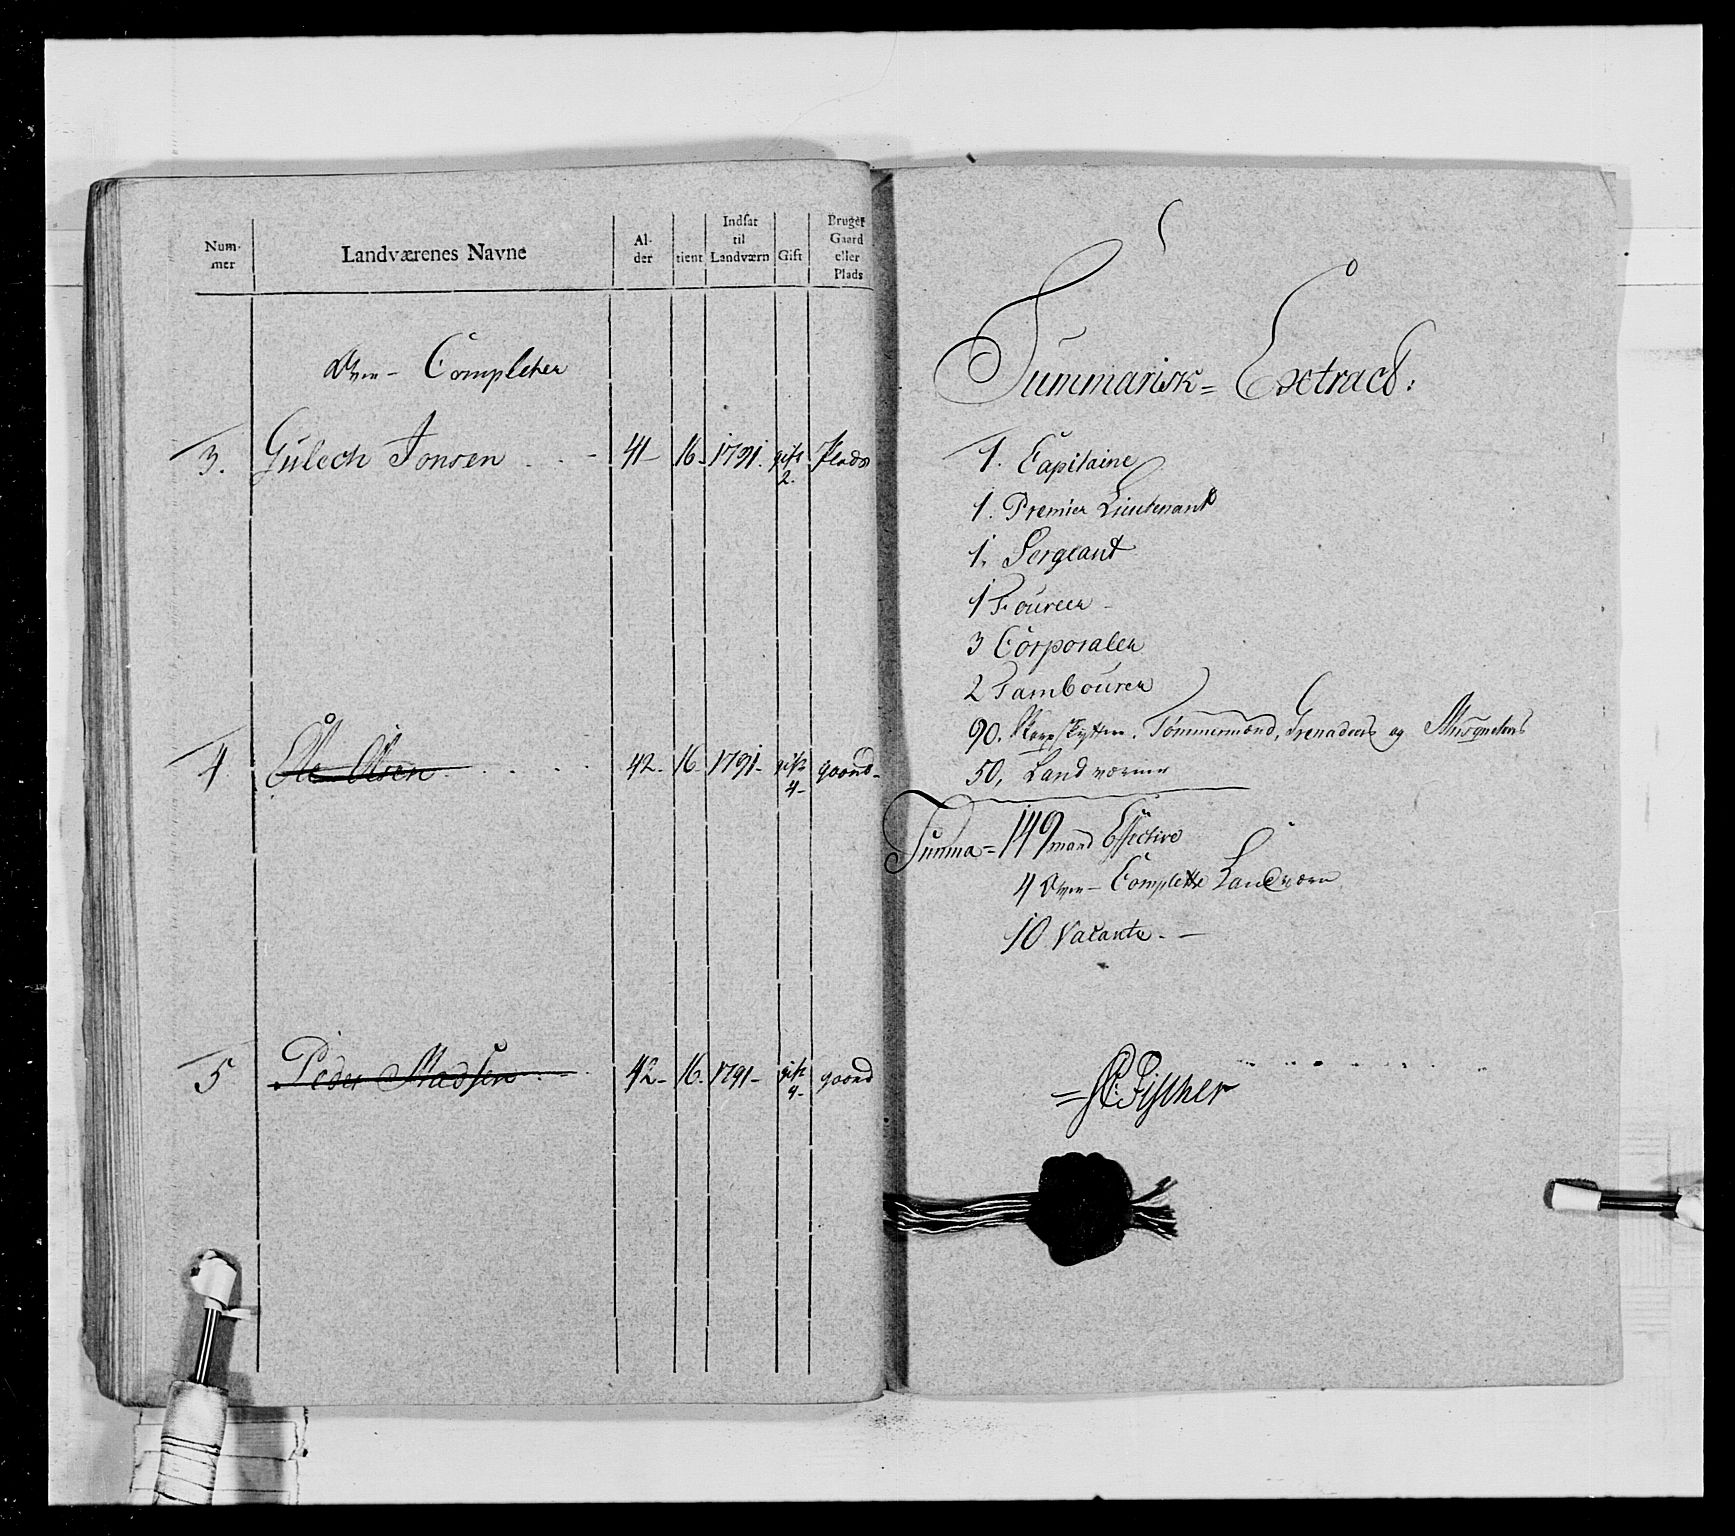 Num-
mer
Landværenes Navne
Al-
der
tient
Indsat
til
Landværn
Gift
Bruger
Gaard
eller
Plads
Over- Completter
3. Gulech Jonsen 41 16 1791. gift 2. Plads
4. Ole Olsen 42. 16. 1791- gift 4- gaard-
5 Peder Madsen 42- 16. 1791- gift 4- gaard
Summarisk= Extract:
1. Capitaine
1. Premier Lieutenant
1. Sergeant
1 Foureer
3 Corporaler
2 Tambourer
90. Skarpskytter, Tømmermænd, Grenadeers og Musqueters
50, Landværner
Summa= 149 mand Effective
4 Over- Complette Landværn
10 Vacante.
Fischer